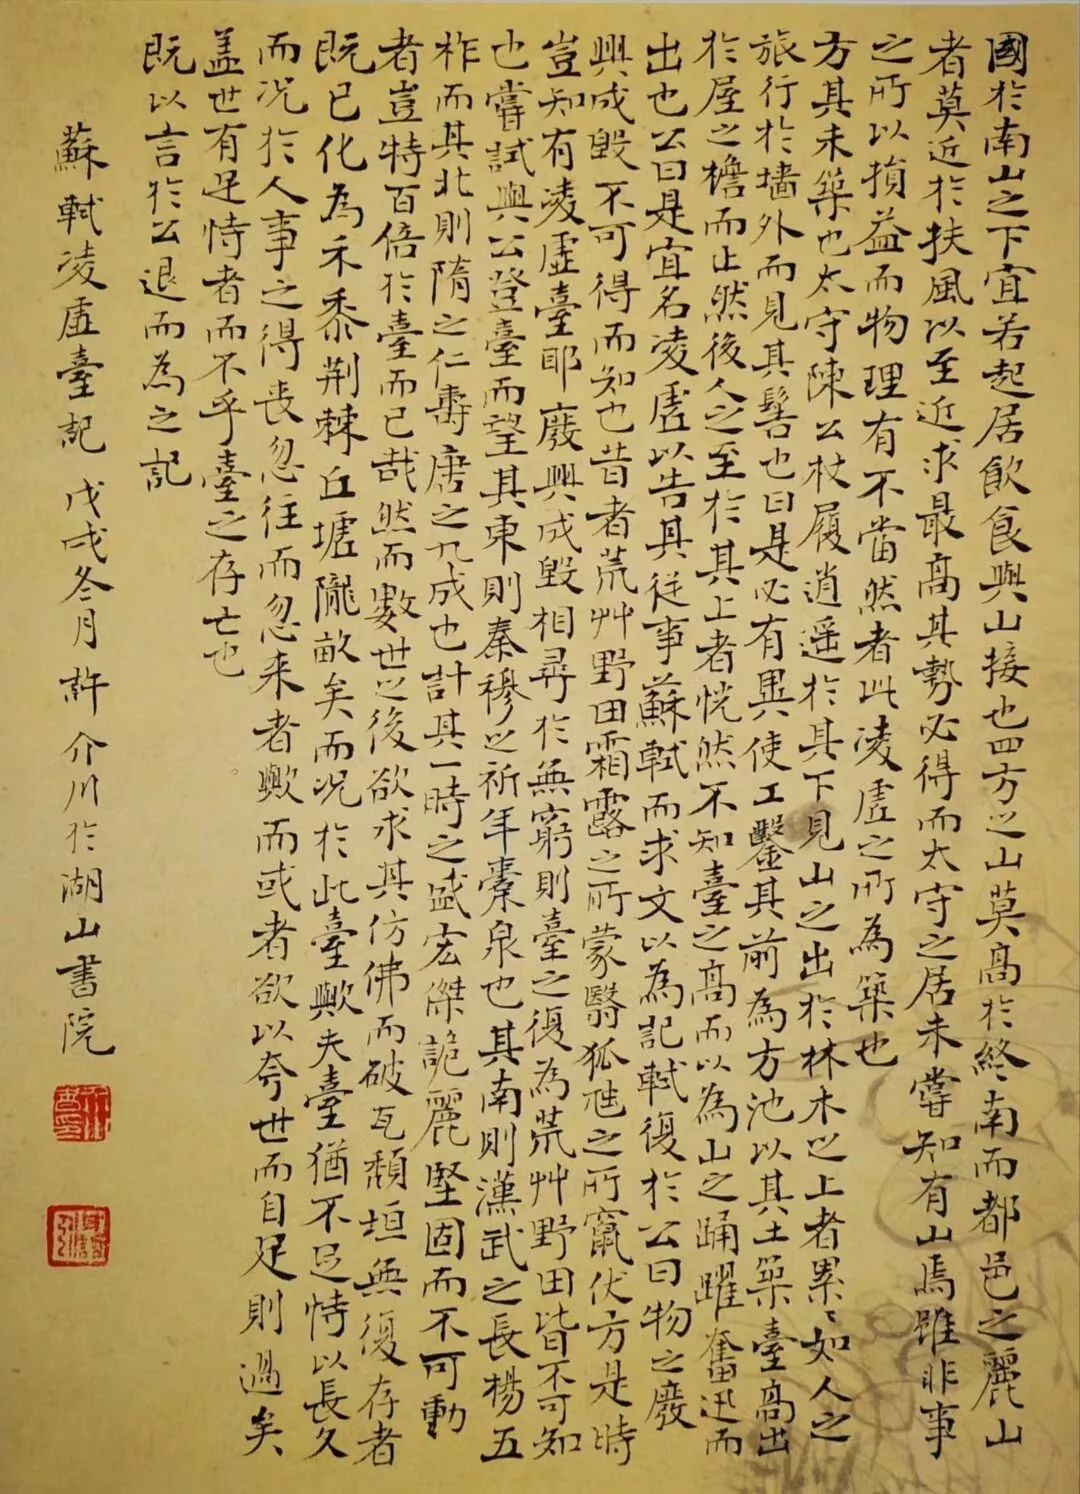 國於南山之下宜若起居飲食與山接也四方之山莫高於終南而都邑之麗山
者莫近於扶風以至近求最高其勢必得而太守之居未嘗知有山焉雖非事
之所以損益而物理有不當然者此淩虛之所為築也
方其未築也太守陳公杖履逍遥於其下見山之出於林木之上者累〻如人之
旅行於墻外而見其髻也曰是必有異使工鑿其前為方池以其土築臺高出
於屋之檐而止然後人之至於其上者恍然不知臺之高而以為山之踊躍奮迅而
出也公曰是宜名淩虛以告其從事蘇軾而求文以為記軾復於公曰物之廢
興成毀不可得而知也昔者荒艸野田霜露之所蒙翳狐虺之所竄伏方是時
豈知有淩虛臺耶廢興成毀相尋於無窮則臺之復為荒艸野田皆不可知
也嘗試與公登臺而望其東則秦穆之祈年橐泉也其南則漢武之長楊五
柞而其北則隋之仁壽唐之九成也計其一時之盛宏傑詭麗堅固而不可動
者豈特百倍於臺而已哉然而數世之後欲求其仿佛而破瓦頹垣無復存者
既已化為禾黍荆棘丘墟隴畝矣而況於此臺歟夫臺猶不足恃以長久
而況於人事之得喪忽往而忽来者歟而或者欲以夸世而自足則過矣
盖世有足恃者而不乎臺之存亡也
既以言於公退而為之記
蘇軾淩虛臺記 戊戌冬月許介川於湖山書院